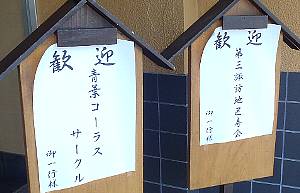 歓迎
青葉コーラス
サークル
御一行様
歓迎
第三諏訪池邑春会
御一行様